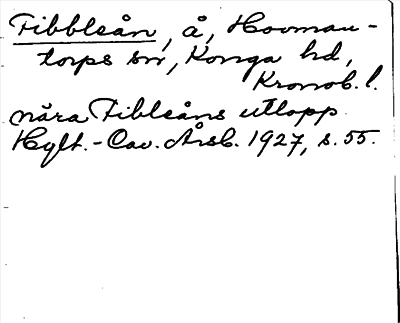 Fibbleån, å, Hovman-
torps sn, Konga hd,
Kronob. l.
nära Fibleåns utlopp
Hylt.-Cav. Årsb. 1927, s. 55.